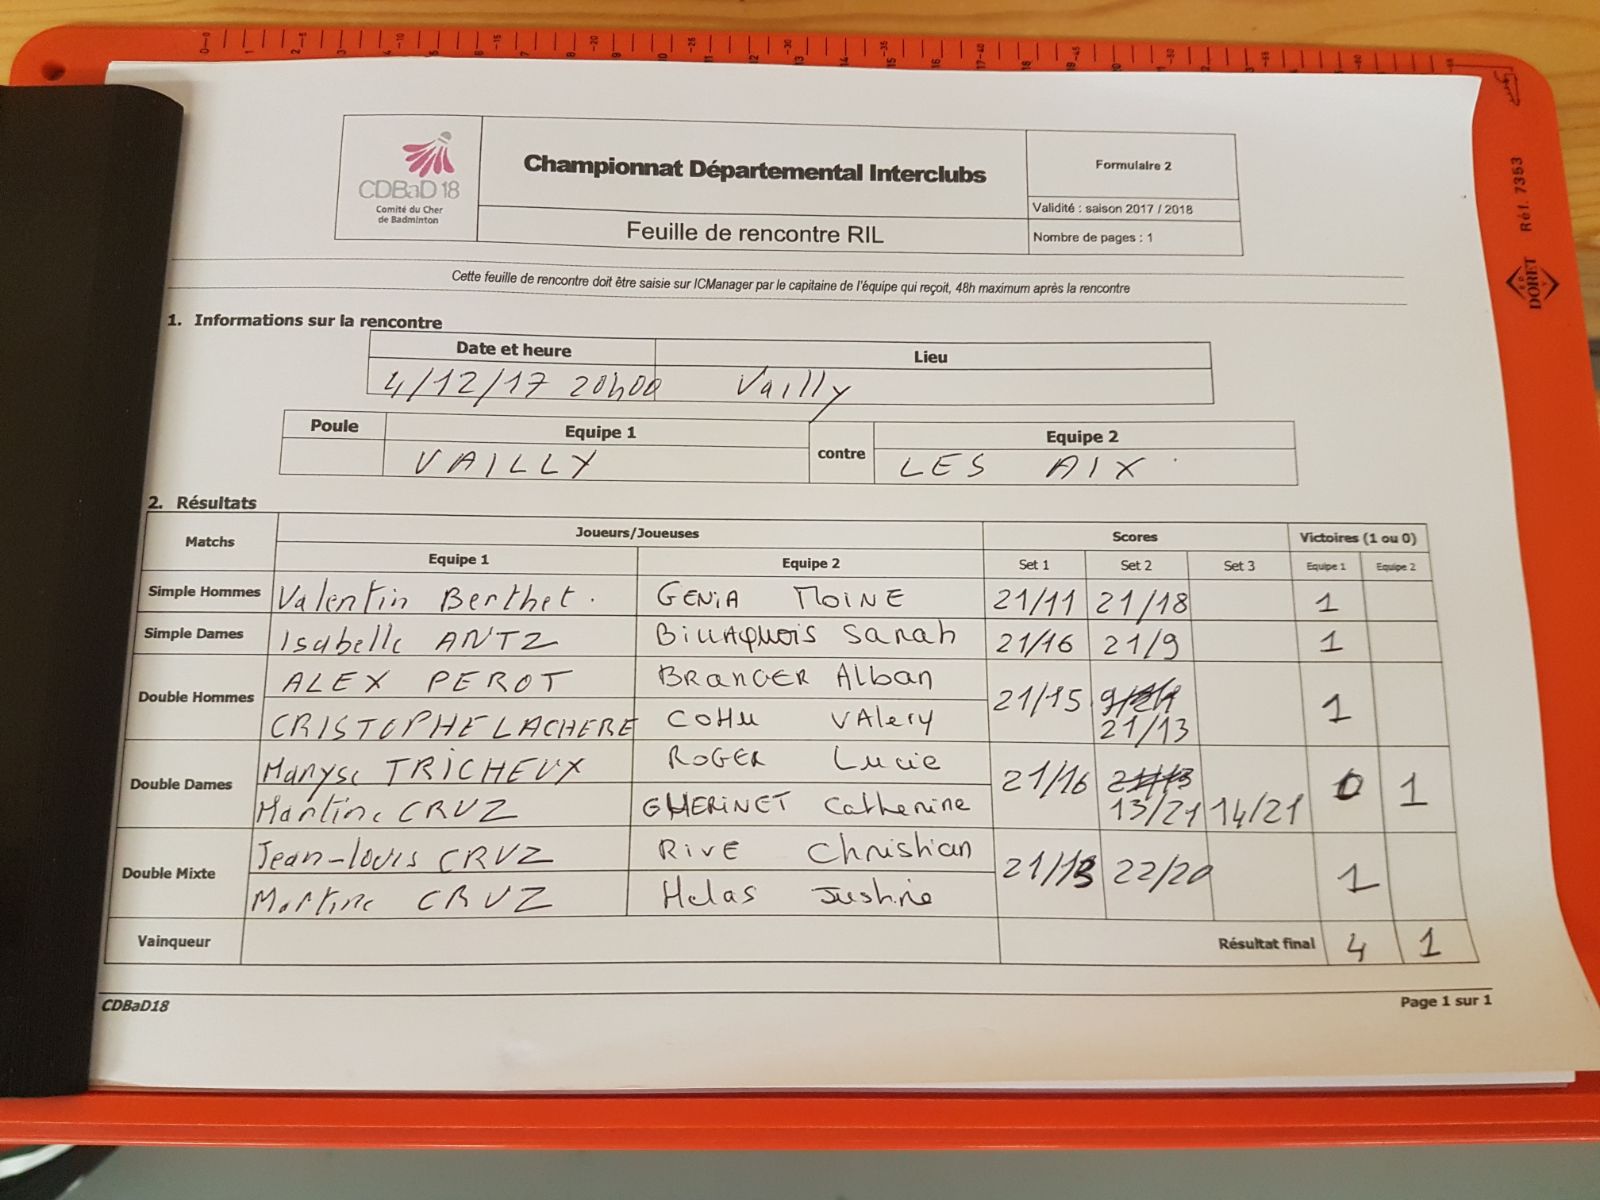 CDBaD 18
Comité du Cher
de Badminton
Championnat Départemental Interclubs
Feuille de rencontre RIL
Formulaire 2
Validité : saison 2017 / 2018
Nombre de pages : 1
Cette feuille de rencontre doit être saisie sur ICManager par le capitaine de l'équipe qui reçoit, 48h maximum après la rencontre
1. Informations sur la rencontre
Date et heure Lieu
4/12/17 20h00 Vailly
Poule Equipe 1 contre Equipe 2
VAILLY LES AIX
2. Résultats
Matchs Joueurs/Joueuses Scores Victoires (1 ou 0)
Equipe 1 Equipe 2 Set 1 Set 2 Set 3 Equipe 1 Equipe 2
Simple Hommes Valentin Berthet. GENiA MOINE 21/11 21/18 1
Simple Dames Isabelle ANTZ Billaquois Sarah 21/16 21/9 1
Double Hommes ALEX PEROT BRANGER Alban 21/15 1
CRISTOPHE LACHERE COHU VAlery 21/13
Double Dames Maryse TRICHEUX ROGER Lucie 21/16 0 1
Martine CRUZ GHERINET Catherine 13/21 14/21
Double Mixte Jean-louis CRUZ RIVE Christian 21/13 22/20 1
Martine CRUZ Helas Justine
Vainqueur Résultat final 4 1
CDBaD18 Page 1 sur 1
Réf. 7353
DORET